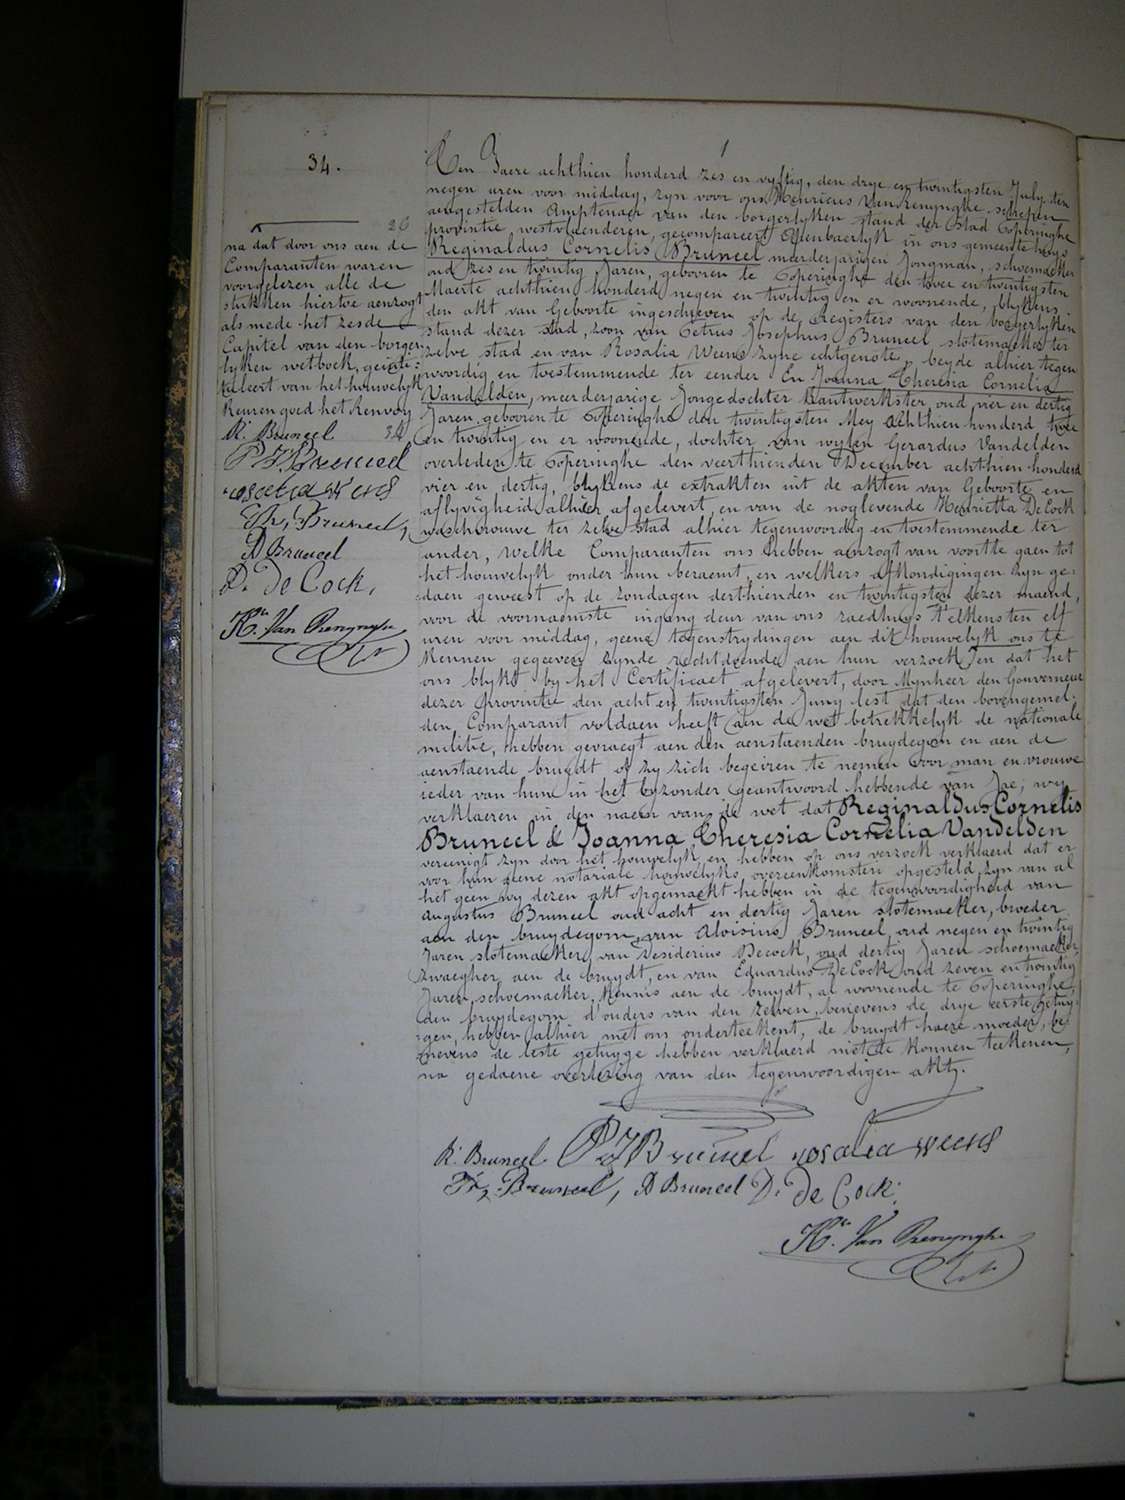 34.
26
na dat door ons aen de
Comparanten waren
voorgelezen alle de
stukken hiertoe aenzogt
als mede het zesde
Capitel van den borger-
lyken wetboek, geinti:
tuleert van het houwelyk
Keuren goed het Renvoy
R. Bruneel 34
P J Bruneel
rosalia weens
Bruneel,
A Bruneel
D. De Cock,
H. Van Renynghe
Den Jaere achthien honderd zes en vyftig, den drye en twintigsten July ten
negen uren voor middag, zyn voor ons Henricus Van Renynghe schepen
aengestelden Amptenaer van den borgerlyken stand der stad Poperinghe
provintie westvlaenderen, gecompareert openbaerlyk in ons gemeente huys
Reginaldus Cornelis Bruneel meerderjarigen Jongman, schoemaeker
oud zes en twintig Jaren, gebooren te Poperinghe den twee en twintigsten
Maerte achthien honderd negen en twintig en er woonende, blykens
den akt van Geboorte ingeschreven op de Registers van den borgerlyken
stand dezer stad, zoon van Petrus Josephus Bruneel slotemaeker ter
zelve stad en van Rosalia Weens zyne echtgenote, beyde alhier tegen
woordig en toestemmende ter eender En Joanna Theresia Cornelia
Vandelden, meerderjarige Jongedochter kantwerkster, oud vier en dertig
Jaren gebooren te Poperinghe den twintigsten Mey achthien honderd twee
en twintig en er woonende, dochter van wylen Gerardus Vandelden
overleden te Poperinghe den veerthienden December achthien honderd
vier en dertig, blykens de extrakten uit de akten van Geboorte en
aflyvigheid alhier afgelevert, en van de noglevende Henrietta De Cock
waschvrouwe ter zelve stad alhier tegenwoordig en toestemmende ter
ander, Welke Comparanten ons hebben aenzogt van voortte gaen tot
het houwelyk onder hun beraemt, en welkers afkondigingen zyn ge-
daen geweest op de zondagen derthienden en twintigsten dezer maend,
voor de voornaemste ingang deur van ons raedhuys telkensten elf
uren voor middag, geene tegenstrydingen aen dit houwelyk ons te
kennen gegeven zynde rechtdoende aen hun verzoek en dat het
ons blykt by het Certificaet afgelevert, door Mynheer den Gouverneur
dezer Provintie den acht en twintigsten Juny lest dat den bovengemel-
den Comparant voldaen heeft aen de wet betrekkelyk de nationale
militie, hebben gevraegt aen den aenstaenden bruydegom en aen de
aenstaende bruydt of zy zich begeiren te nemen voor man en vrouwe
ieder van hun in het byzonder geantwoord hebbende van Jae; wy
verklaeren in den naem van de wet dat Reginaldus Cornelis
Bruneel & Joanna Theresia Cornelia Vandelden
vereenigt zyn door het houwelyk, en hebben op ons verzoek verklaerd dat er
voor hun geene notariale houwelyks overeenkomsten opgesteld zyn van al
het geen wy dezen akt opgemaekt hebben in de tegenwoordigheid van
Augustus Bruneel oud acht en dertig Jaren slotemaeker, broeder
aen den bruydegom, van Aloisius Bruneel, oud negen en twintig
Jaren slotemaeker, van Desiderius Decock, oud dertig Jaren schoemaeker,
zwaegher aen de bruydt, en van Eduardus DeCock oud zeven en twintig
Jaren, schoemaeker, kennis aen de bruydt, al woonende te Poperinghe,
den bruydegom d'ouders van den zelven, benevens de drye eerste getuy-
gen, hebben alhier met ons onderteekent, de bruydt haere moeder, be-
nevens de leste getuyge hebben verklaerd niet te konnen teekenen,
na gedaene overlezing van den tegenwoordigen akt.
R. Bruneel P J Bruneel rosalia weens
Bruneel, A Bruneel D. De Cock,
H. Van Renynghe